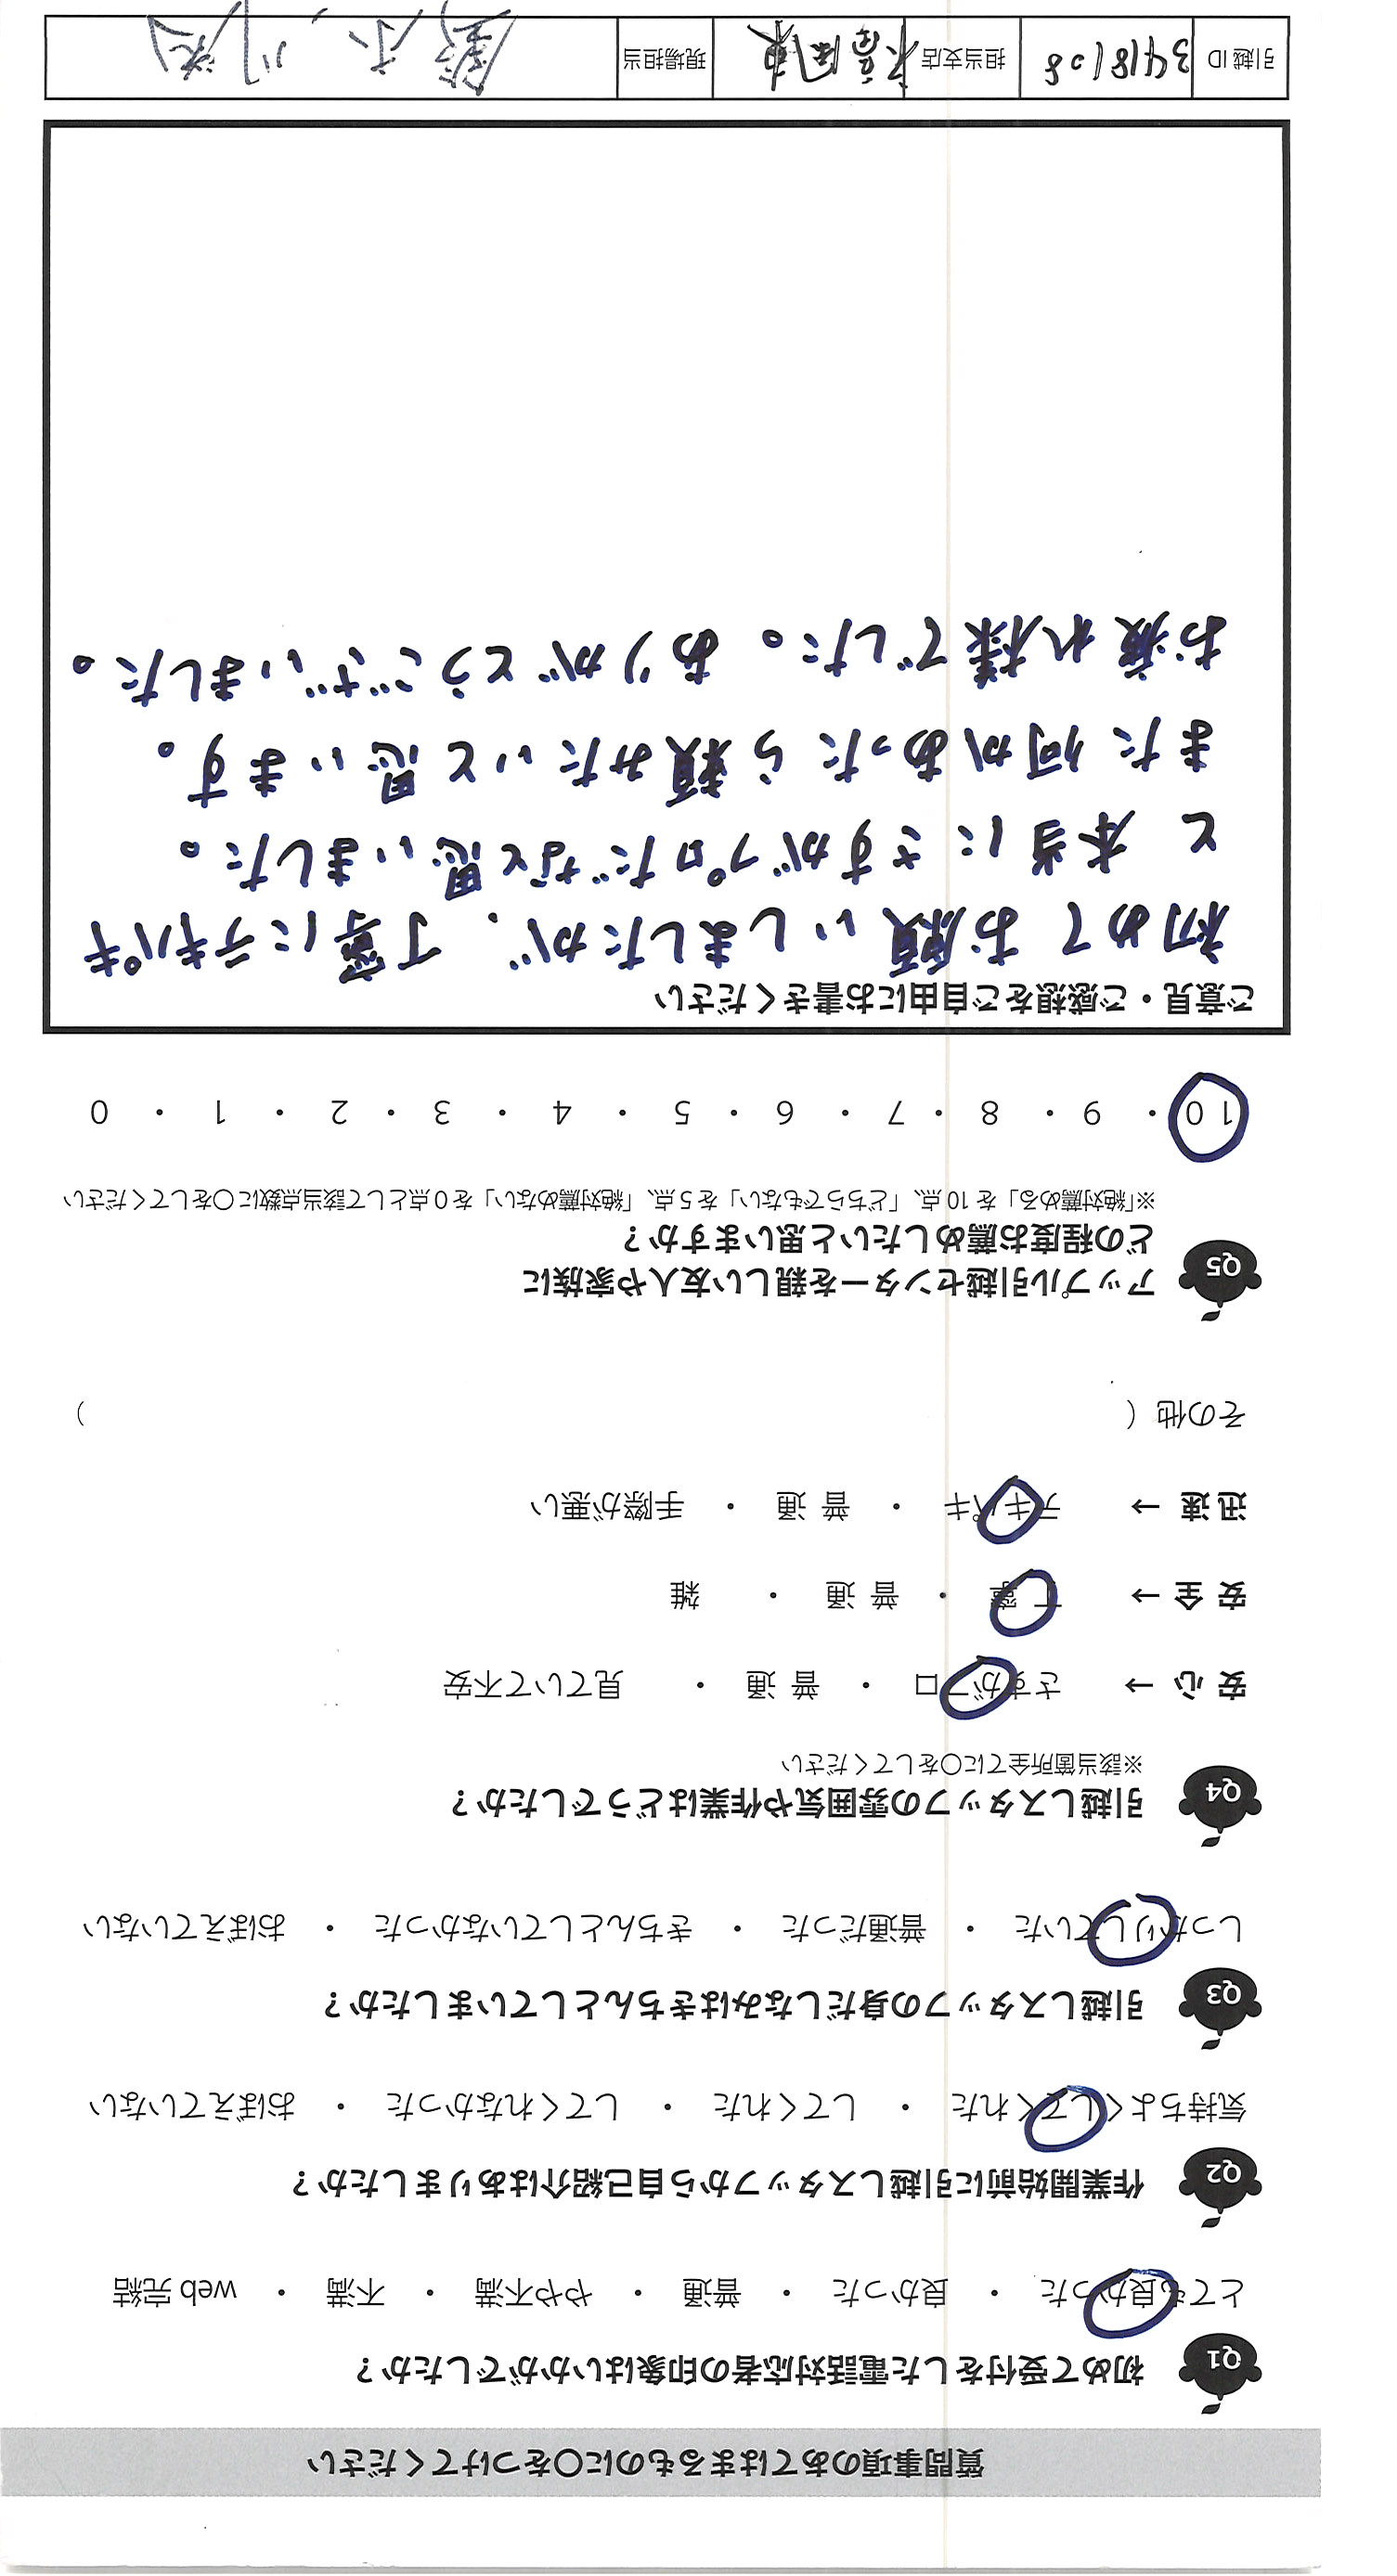 質問事項のあてはまるものに〇をつけてください
Q1 初めて受付をした電話対応者の印象はいかがでしたか？
とても良かった ・ 良かった ・ 普通 ・ やや不満 ・ 不満 ・ web 完結
Q2 作業開始前に引越しスタッフから自己紹介はありましたか？
気持ちよくしてくれた ・ してくれた ・ してくれなかった ・ おぼえていない
Q3 引越しスタッフの身だしなみはきちんとしていましたか？
しっかりしていた ・ 普通だった ・ きちんとしていなかった ・ おぼえていない
Q4 引越しスタッフの雰囲気や作業はどうでしたか？
※該当箇所全てに〇をしてください
安 心 → さすがプロ ・ 普 通 ・ 見ていて不安
安 全 → 丁寧 ・ 普 通 ・ 雑
迅 速 → テキパキ ・ 普 通 ・ 手際が悪い
その他（ ）
Q5 アップル引越センターを親しい友人や家族に
どの程度お薦めしたいと思いますか？
※「絶対薦める」を 10 点、「どちらでもない」を 5 点、「絶対薦めない」を 0 点として該当点数に〇をしてください
10 ・ 9 ・ 8 ・ 7 ・ 6 ・ 5 ・ 4 ・ 3 ・ 2 ・ 1 ・ 0
ご意見・ご感想をご自由にお書きください
初めてお願いしましたが、丁寧にテキパキ
と本当にさすがプロだなと思いました。
また何かあったら頼みたいと思います。
お疲れ様でした。ありがとうございました。
引越 ID 3418108 担当支店 現場担当 鈴木、